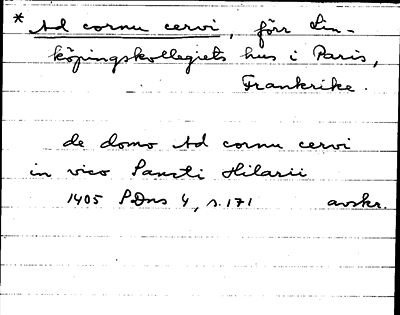 * Ad cornu cervi, förr Lin-
köpingskollegiets hus i Paris,
Frankrike.
de domo Ad cornu cervi
in vico Sancti Hilarii
1405 PDns 4, s. 171 avskr.